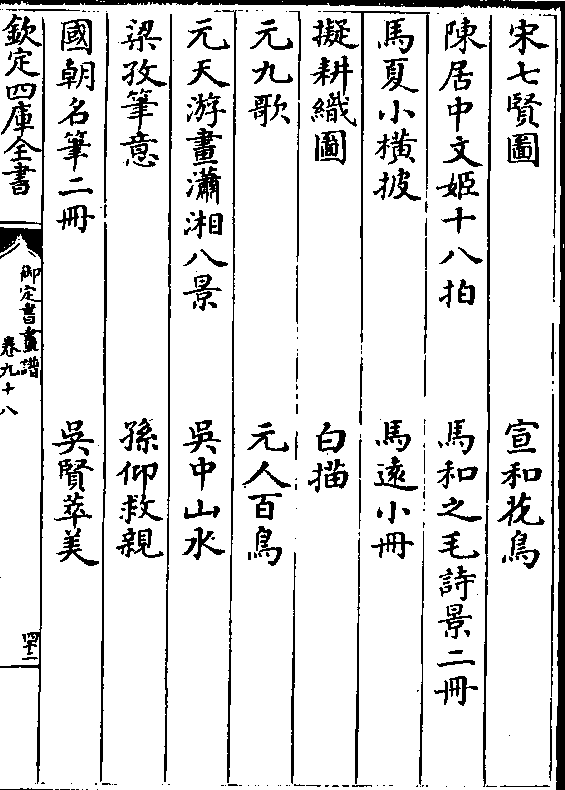 宋七賢圖　宣和花鳥
陳居中文姬十八拍　馬和之毛詩景二冊
馬夏小横披　馬遠小冊
擬耕織圖　白描
元九歌　元人百鳥
元天游畫瀟湘八景　吳中山水
梁孜筆意　孫仰救親
國朝名筆二冊　吳賢萃美
欽定四庫全書
御定書畫譜
卷九十八
四十二